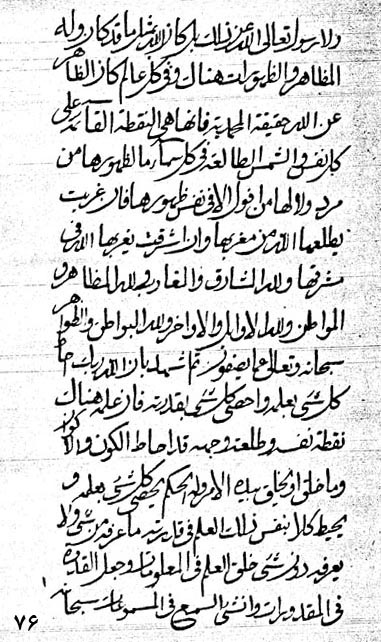 ولا رسوله تعالى الله عن ذلك بل كان الله بمثل ما قد كان وله
المظاهر والظهورات هناك وفي كل عالم كان الظاهر
عن الله حقيقة المحمدية فانها هي النقطة القائمة على
كل نفس والشمس الطالعة في كل سماء ما لظهورها من
مرد ولا لها من افول الا في نفس ظهورها فان غربت
يطلعها الله من مغربها وان اشرقت يغربها الله في
مشرقها ولله المشارق والمغارب ولله المظاهر و
المواطن ولله الاوائل والاواخر ولله البواطن والظواهر
سبحانه وتعالى عما يصفون ثم اشهد بان الله ربك احاط
كل شيء بعلمه واحصى كل شيء بقدرته فان علمه هناك
نقطة نفسه وطلعة وجهه قد احاط الكون والاكوان
وما خلق او يخلق بيده الامر وله الحكم يحصي كل شيء بعلمه و
يحيط كلا بنفس ذلك العلم في قدرته ما عرفه من شيء ولا
يعرفه دونه شيء خلق العلم في المعلومات وجعل القدرة
في المقدورات وانشئ السمع في المسموعات سبحانه
٧۶